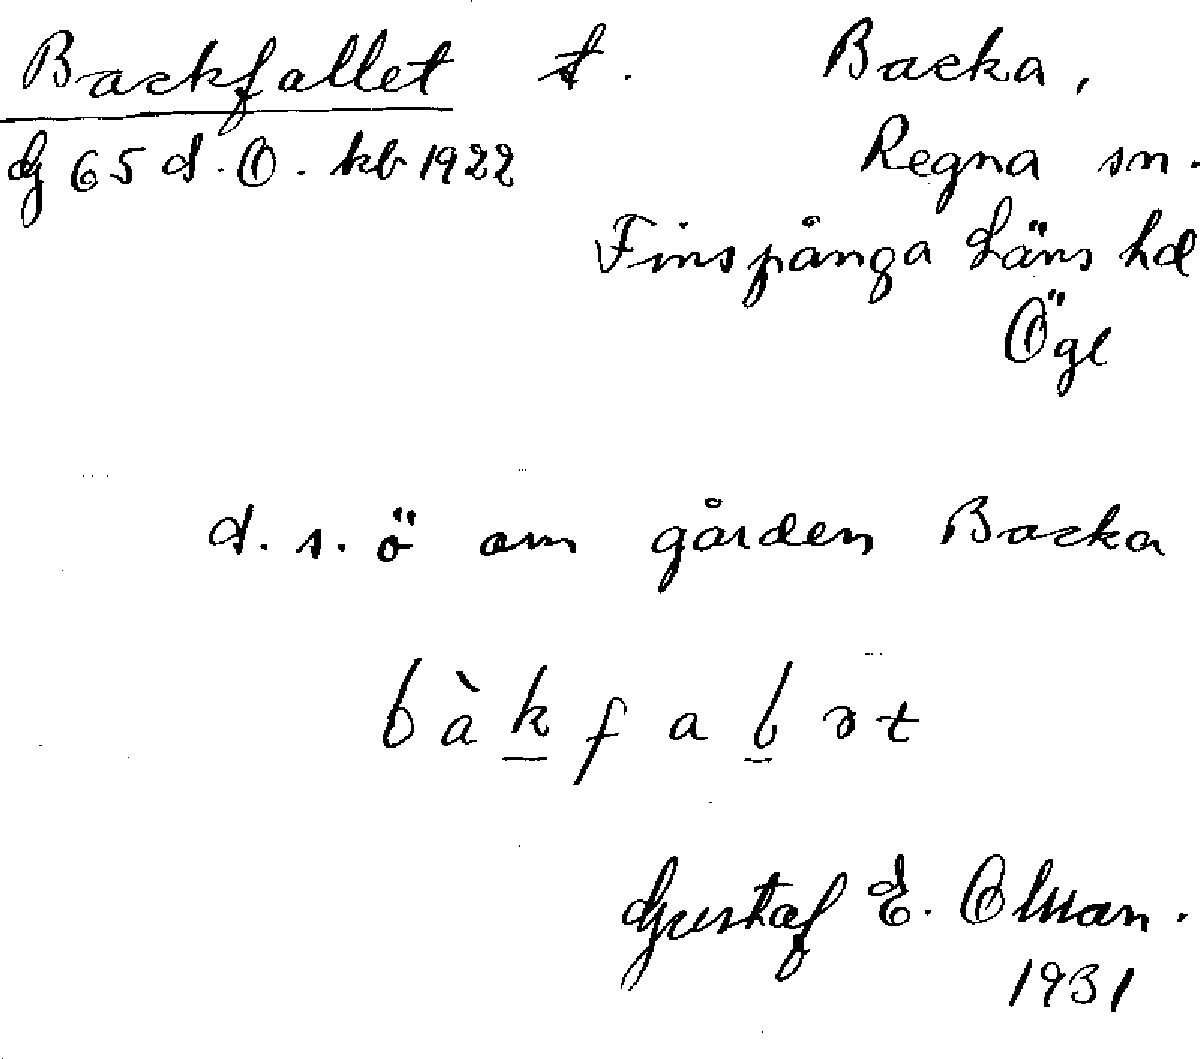 Backfallet t. Backa,
dj 65 d. O. kb 1922 Regna sn.
Finspånga Läns hd
Ögl
d. s. ö om gården Backa
bàkfalət
Gustaf E. Olman.
1931